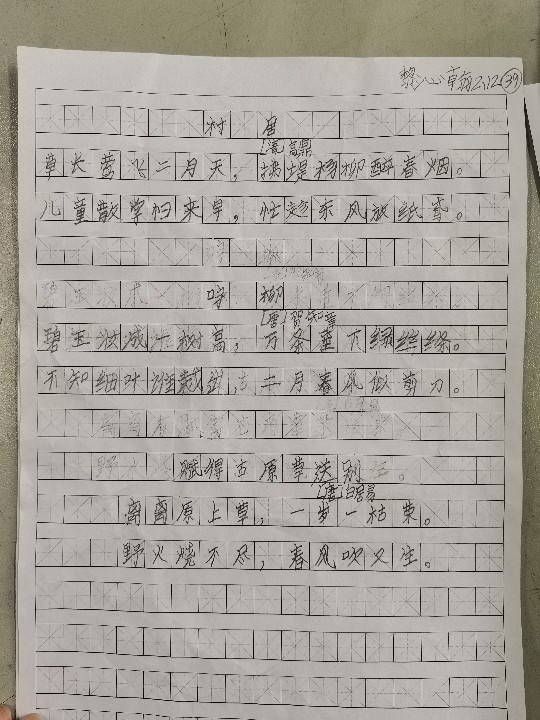 2.12 39
村居
[清]高鼎
草长莺飞二月天，拂堤杨柳醉春烟。
儿童散学归来早，忙趁东风放纸鸢。
咏柳
[唐]贺知章
碧玉妆成一树高，万条垂下绿丝绦。
不知细叶谁裁出，二月春风似剪刀。
赋得古原草送别
[唐]白居易
离离原上草，一岁一枯荣。
野火烧不尽，春风吹又生。